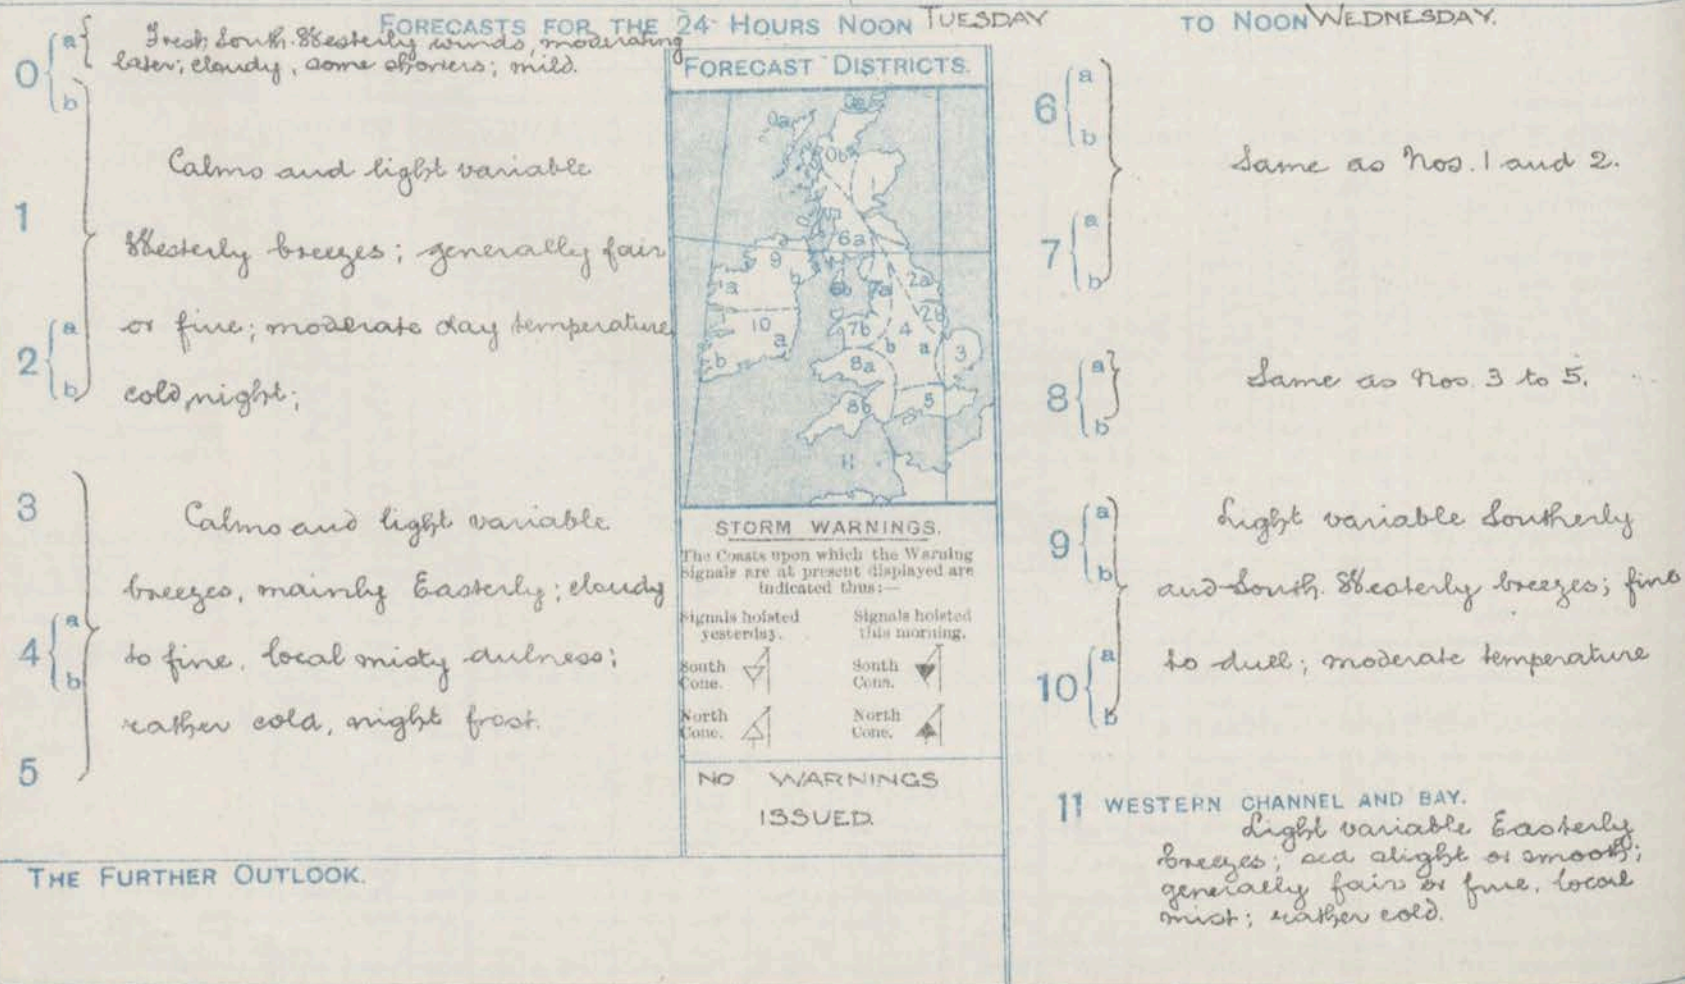 FORECASTS FOR THE 24 HOURS NOON TUESDAY TO NOON WEDNESDAY.
0 a b
Fresh South-Westerly winds, moderating
later; cloudy, some showers; mild.
1
2 a b
Calms and light variable
Westerly breezes; generally fair
or fine; moderate day temperature
cold night;
3
4 a b
5
Calms and light variable
breezes, mainly Easterly; cloudy
to fine, local misty dulness;
rather cold, night frost.
THE FURTHER OUTLOOK.
FORECAST DISTRICTS.
0a
0b
6a
9
b
a
6b
7a
2a
2b
10
a
b
7b
4
b
a
3
8a
8b
5
11
STORM WARNINGS.
The Coasts upon which the Warning
Signals are at present displayed are
indicated thus:—
Signals hoisted
yesterday.
Signals hoisted
this morning.
South
Cone.
South
Cone.
North
Cone.
North
Cone.
NO WARNINGS
ISSUED.
6 a b
7 a b
Same as Nos. 1 and 2.
8 a b
Same as Nos. 3 to 5.
9 a b
10 a b
Light variable Southerly
and South-Westerly breezes; fine
to dull; moderate temperature
11 WESTERN CHANNEL AND BAY.
Light variable Easterly
breezes; sea slight or smooth;
generally fair or fine, local
mist; rather cold.